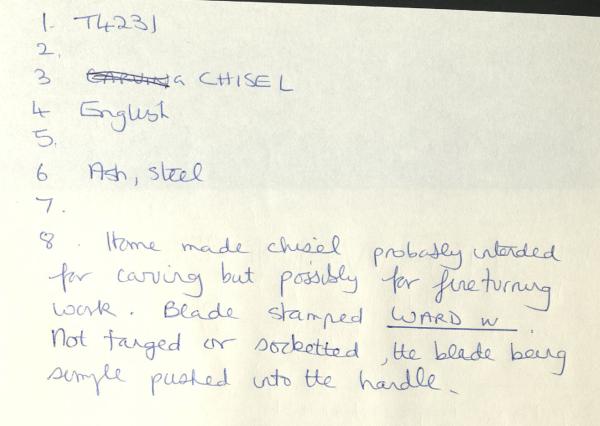 1. T4231
2.
3 CARVING CHISEL
4 English
5.
6 Ash, steel
7.
8. Home made chisel probably intended
for carving but possibly for fine turning
work. Blade stamped WARD W.
Not tanged or socketted, the blade being
simple pushed into the handle.